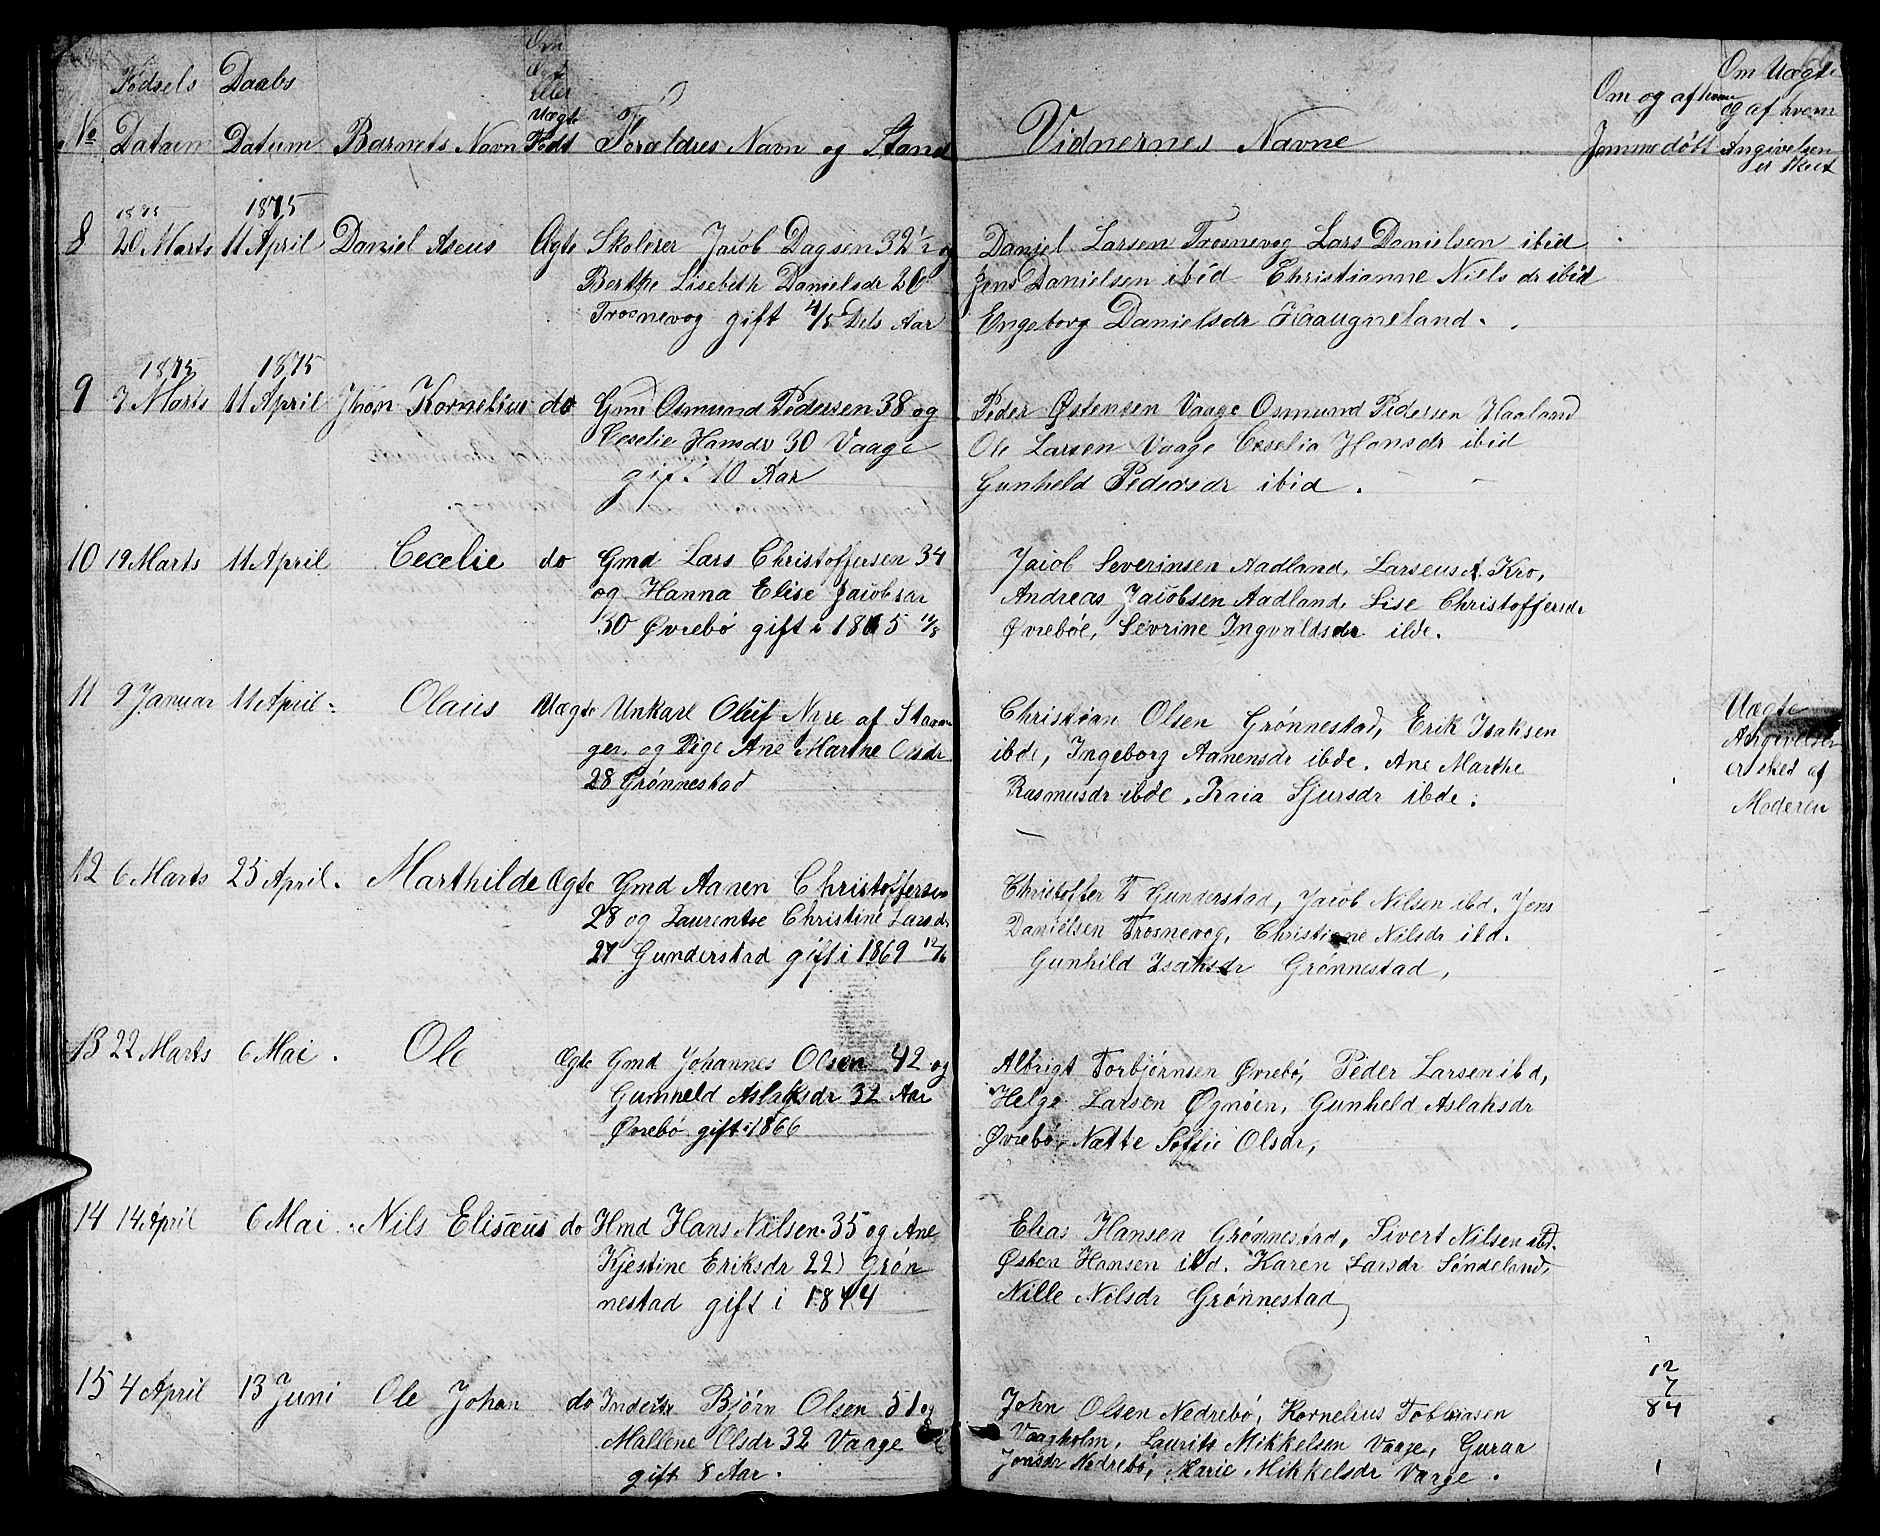 Fødsels Daabs Om Ægte eller Uægte Født
No Datum Datum Barnets Navn Forældres Navn og Stand
1875 1875
8 20 Marts 11 April Daniel Aseus Ægte Skolerer Jacob Dagsen 32 1/2 og
Berthe Lisebeth Danielsdr 20
Trosnevog gift 4/5 Dels Aar
1875 1875
9 7 Marts 11 April Jhon Kornelius do Gmd Osmund Pedersen 38 og
Ceselie Hansdr 30 Vaage
gift 10 Aar
10 19 Marts 11 April Cecelie do Gmd Lars Christoffersen 34
og Hanna Elise Jacobsdr
30 Øvrebö gift i 1865
11 9 Januar 11 April Olaus Uægte Unkarl Oluf Nyre af Stavan
ger og Pige Ane Marthe Olsdr
28 Grønnestad
12 6 Marts 25 April. Marthilde Ægte Gmd Aanen Christoffersen
28 og Laurentse Christine Larsdr
27 Gunderstad gift i 1869
13 22 Marts 6 Mai. Ole Ægte Gmd Johannes Olsen 42 og
Gunneld Aslaksdr 32 Aar
Øvrebø gift i 1866
14 14 April 6 Mai. Nils Elisæus do Hmd Hans Nilsen 35 og Ane
Kjestine Eriksdr 22) Grøn
nestad gift i 1874
15 4 April 13 Juni Ole Johan do Inderst Bjørn Olsen 51 og
Mallene Olsdr 32 Vaage
gift 8 Aar.
Vidnernes Navne
Om og af hvem
Jemmedöbt
Om Uægte
og af hvem
Angivelsen
er skeet
Daniel Larsen Trosnevog Lars Danielsen ibid
Jens Danielsen ibid Christianne Niels dr ibid
Engeborg Danielsdr Haaugneland.
Peder Østensen Vaage Osmund Pedersen Haaland
Ole Larsen Vaage Ceselia Hansdr ibid
Gunheld Pedersdr ibid.
Jacob Severinsen Aadland, Larseus A. Kro,
Andreas Jacobsen Aadland. Lise Christoffersdr
Øvreböe, Sevrine Ingvaldsdr ibde.
Christian Olsen Grønnestad, Erik Isaksen
ibde, Ingeborg Aanensdr ibde. Ane Marthe
Rasmusdr ibde. Kaia Sjursdr ibde.
Uægte
Angivelsen
er sked af
Moderen
Christoffer T Gunderstad, Jacob Nilsen ibd. Jens
Danielsen Trosnevog, Christiane Nilsdr ibd.
Gunhild Isaksdr Grønnestad,
Albrigt Torbjørnsen Øvrebø, Peder Larsen ibd,
Helge Larsen Ognöen, Gunheld Aslaksdr
Øvrebø, Nætte Soffie Olsdr,
Elias Hansen Grønnestad, Sivert Nilsen ibd.
Østen Hansen ibd. Karen Larsdr Søndeland,
Nille Nilsdr Grønnestad
12
7
84
John Olsen Nedrebö, Kornelius Tobbiasen
Vaagholm, Laurits Mikkelsen Vaage, Guraa
Jonsdr Nedrebö, Marie Mikkelsdr Vaage.